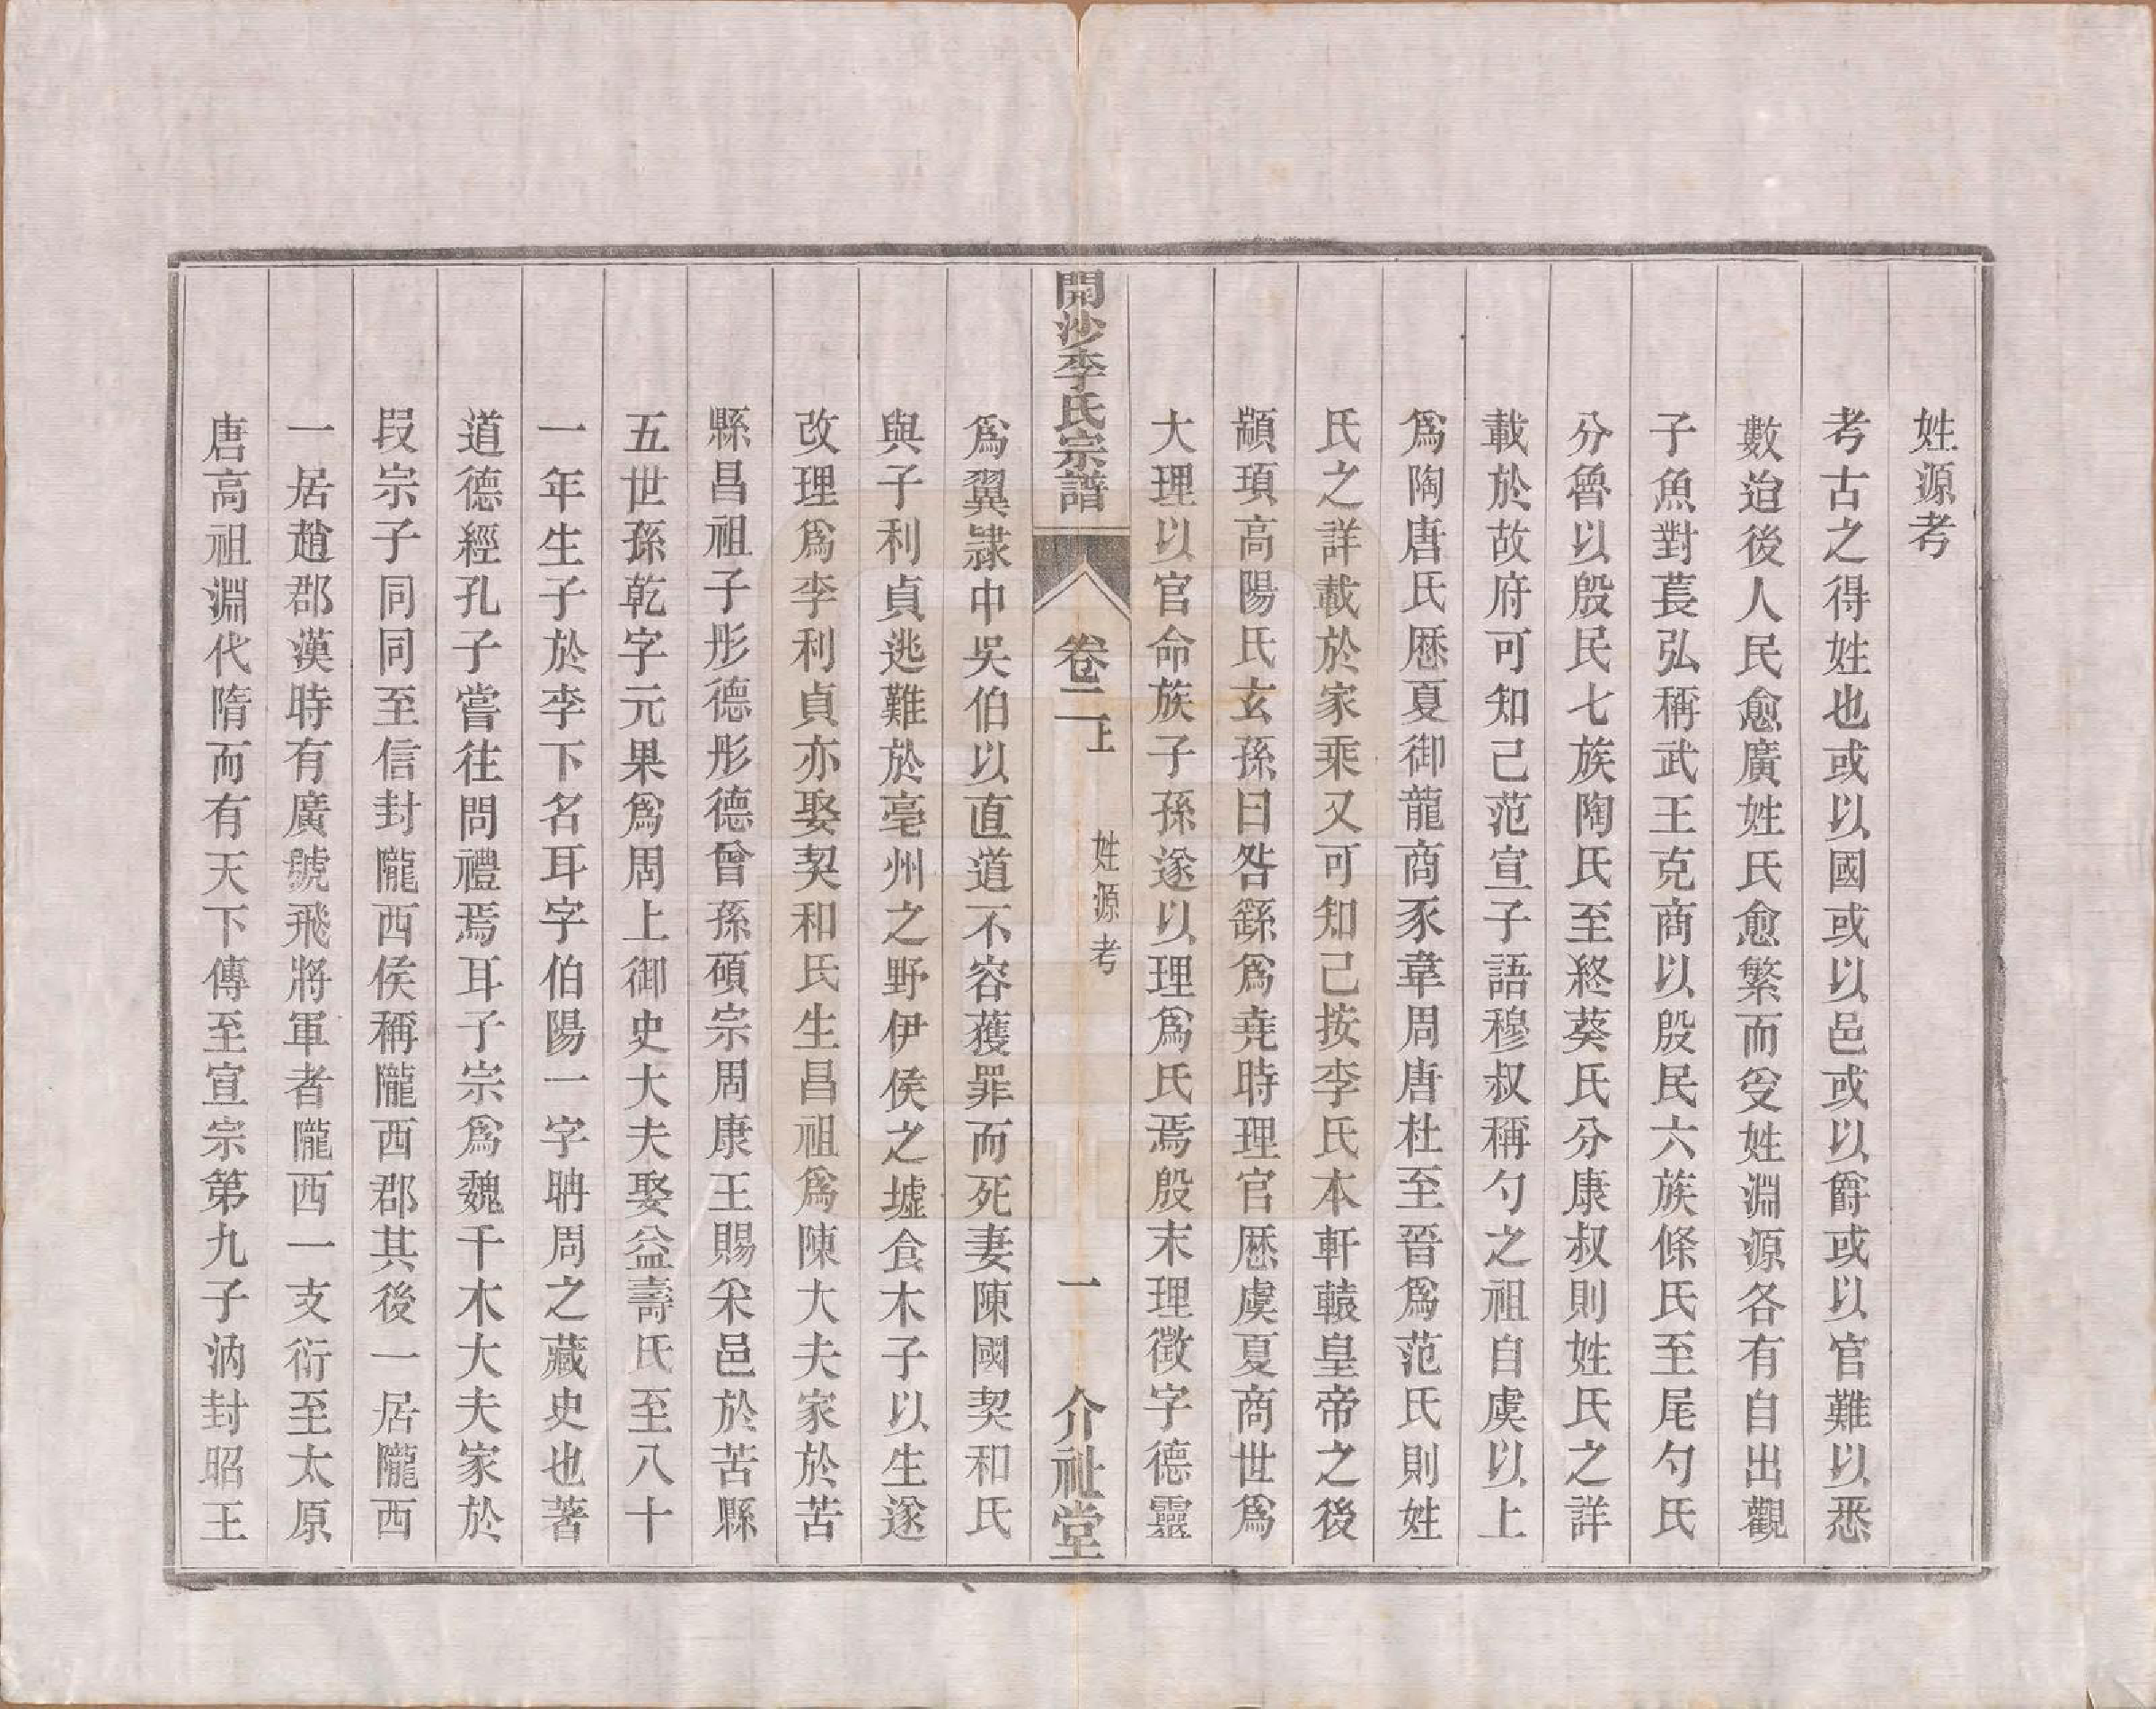 姓源考
考古之得姓也或以國或以邑或以爵或以官難以悉
數迨後人民愈廣姓氏愈繁而受姓淵源各有自出觀
子魚對萇弘稱武王克商以殷民六族條氏至尾勺氏
分魯以殷民七族陶氏至終葵氏分康叔則姓氏之詳
載於故府可知己范宣子語穆叔稱勺之祖自虞以上
爲陶唐氏歷夏御龍商豕韋周唐杜至晉爲范氏則姓
氏之詳載於家乘又可知己按李氏本軒轅皇帝之後
顓頊高陽氏玄孫曰咎繇爲堯時理官歷虞夏商世爲
大理以官命族子孫遂以理爲氏焉殷末理徵字德靈
開沙李氏宗譜
卷二上
姓源考
一
介祉堂
爲翼隸中吳伯以直道不容獲罪而死妻陳國契和氏
與子利貞逃難於亳州之野伊侯之墟食木子以生遂
改理爲李利貞亦娶契和氏生昌祖爲陳大夫家於苦
縣昌祖子彤德彤德曾孫碩宗周康王賜采邑於苦縣
五世孫乾字元果爲周上御史大夫娶益壽氏至八十
一年生子於李下名耳字伯陽一字聃周之藏史也著
道德經孔子嘗往問禮焉耳子宗爲魏干木大夫家於
段宗子同同至信封隴西侯稱隴西郡其後一居隴西
一居趙郡漢時有廣號飛將軍者隴西一支衍至太原
唐高祖淵代隋而有天下傳至宣宗第九子汭封昭王